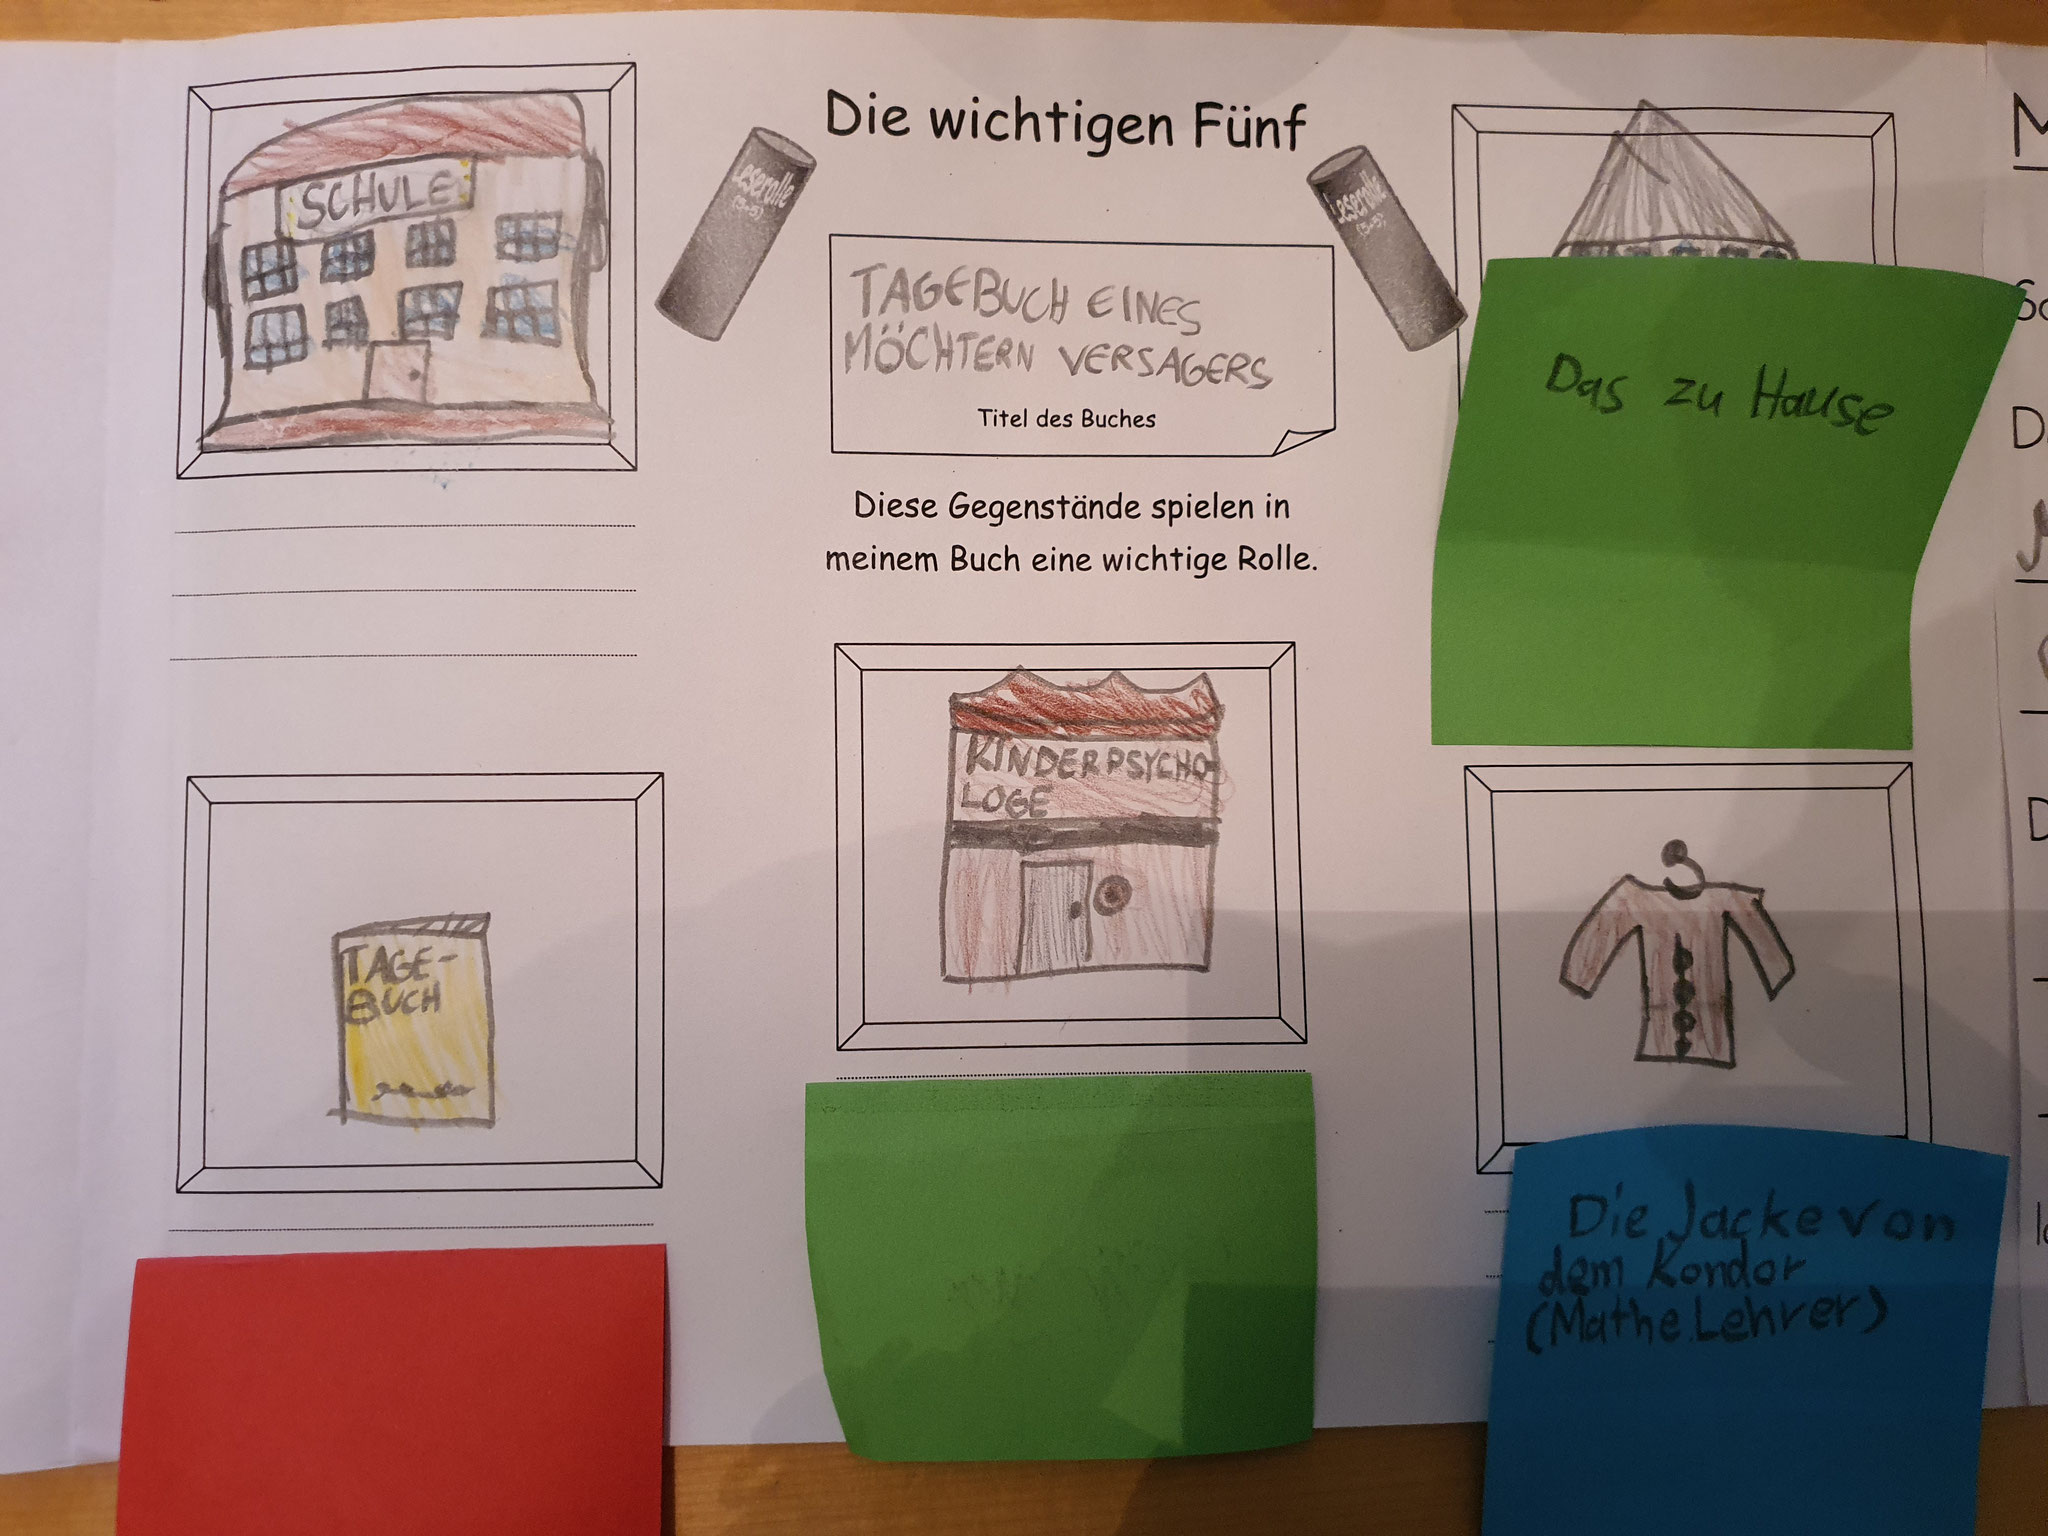 Die wichtigen Fünf
SCHULE
Leserolle
(3-5)
Leserolle
(3-5)
TAGEBUCH EINES
MÖCHTERN VERSAGERS
Titel des Buches
Diese Gegenstände spielen in
meinem Buch eine wichtige Rolle.
Das zu Hause
TAGE-
BUCH
KINDERPSYCHO-
LOGE
Die Jacke von
dem Kondor
(Mathe Lehrer)